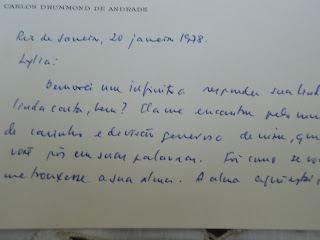 CARLOS DRUMMOND DE ANDRADE
Rio de Janeiro, 20 janeiro 1978.
Lylia:
Demorei um infinito a responder sua
linda carta, hem? Ela me encantou pelo
de carinho e de visão generosa de mim, que
você pôs em suas palavras. Foi como se você
me trouxesse a sua alma. A alma aqui está,